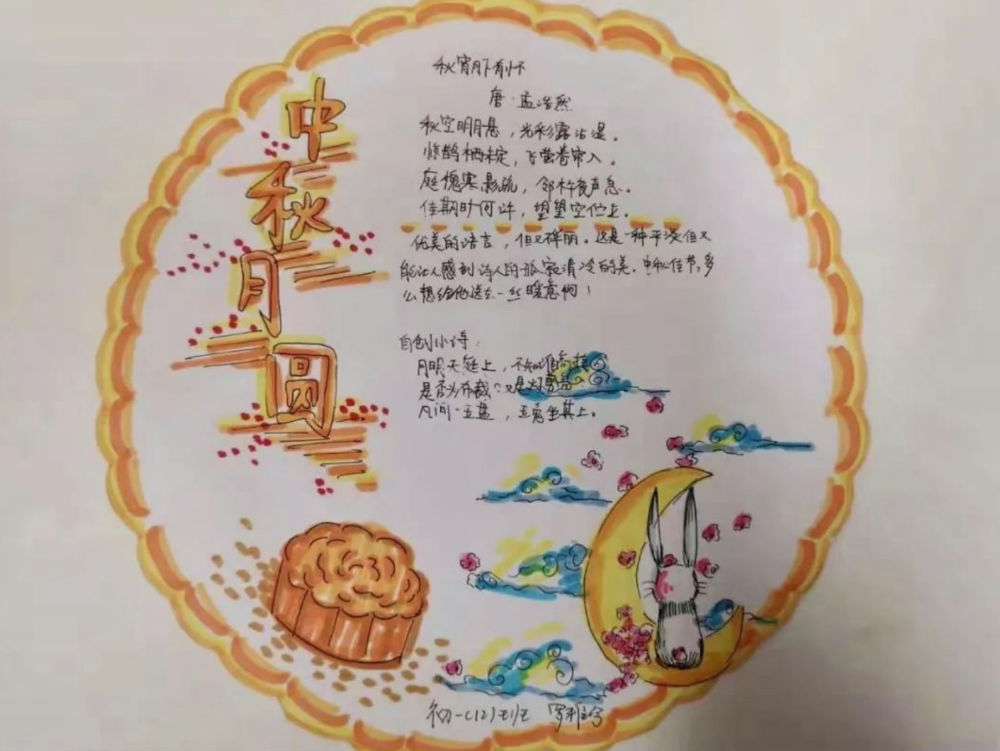 中秋月圆
秋宵月下有怀
唐·孟浩然
秋空明月悬，光彩露沾湿。
惊鹊栖未定，飞萤卷帘入。
庭槐寒影疏，邻杵夜声急。
佳期旷何许，望望空伫立。
优美的语言，但又碎丽。这是一种平淡但又
能让人感到诗人的孤寂清冷的美。中秋佳节，多
么想给他送去一丝暖意啊！
自创小诗：
月明天庭上，不知谁高挂
是否为布裁？又是为剪
凡间一玉盘，玉兔坐其上。
初一(12)班